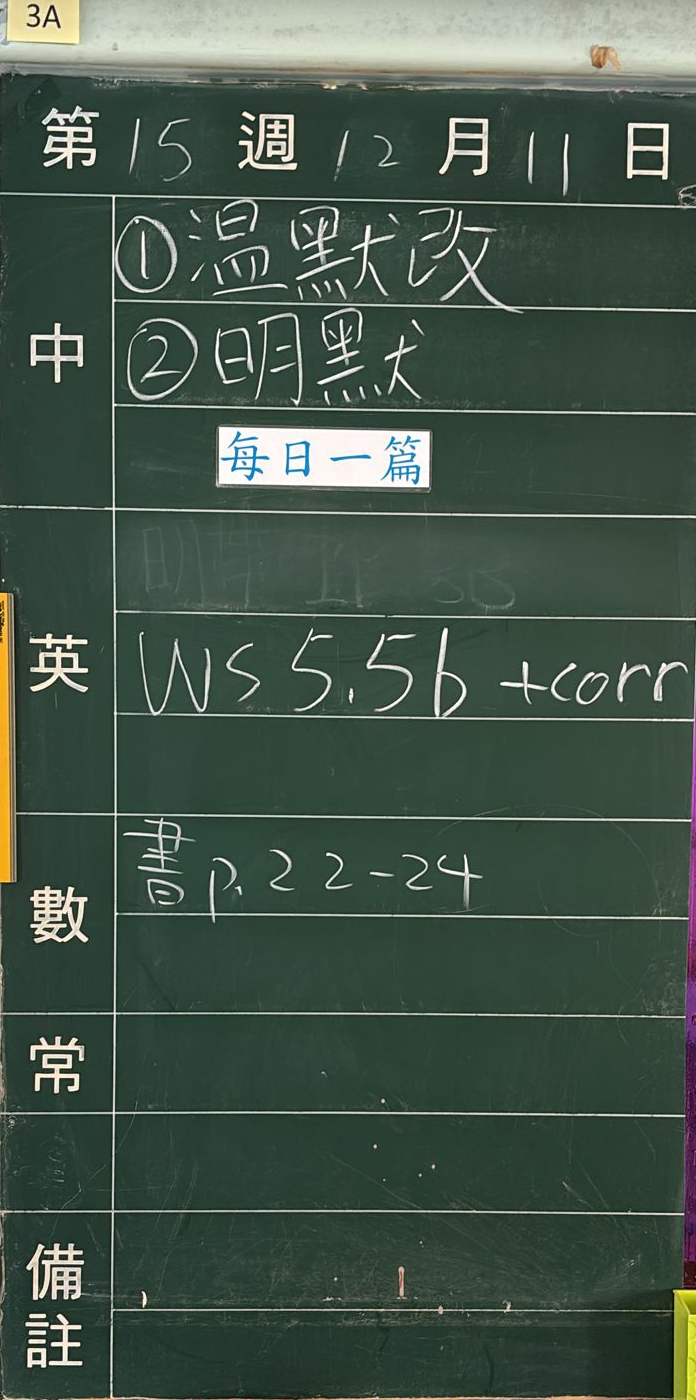 3A
第 15 週 12 月 11 日
中
①温默改
②明默
每日一篇
英
WS 5.5b +corr
數
書p.22-24
常
備註